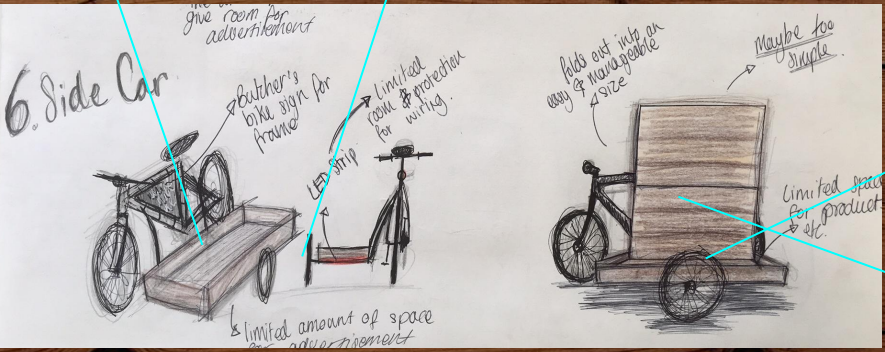 give room for
advertisement
6. Side Car
Butcher's
bike sign for
frame
Limited
room & protection
for wiring.
LED strip
limited amount of space
for advertisement
folds out into an
easy & manageable
size
Maybe too
simple.
Limited space
for product
etc.